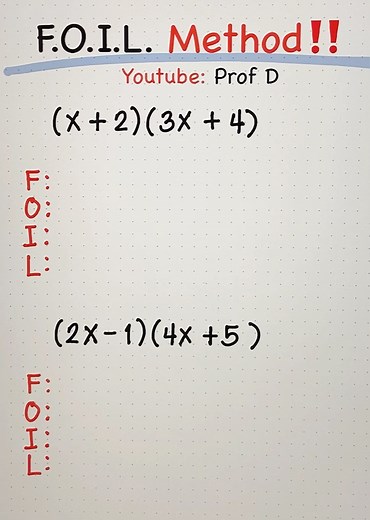 F.O.I.L. Method!!
Youtube: Prof D
(x + 2)(3x + 4)
F:
O:
I:
L:
(2x - 1)(4x + 5)
F:
O:
I:
L: